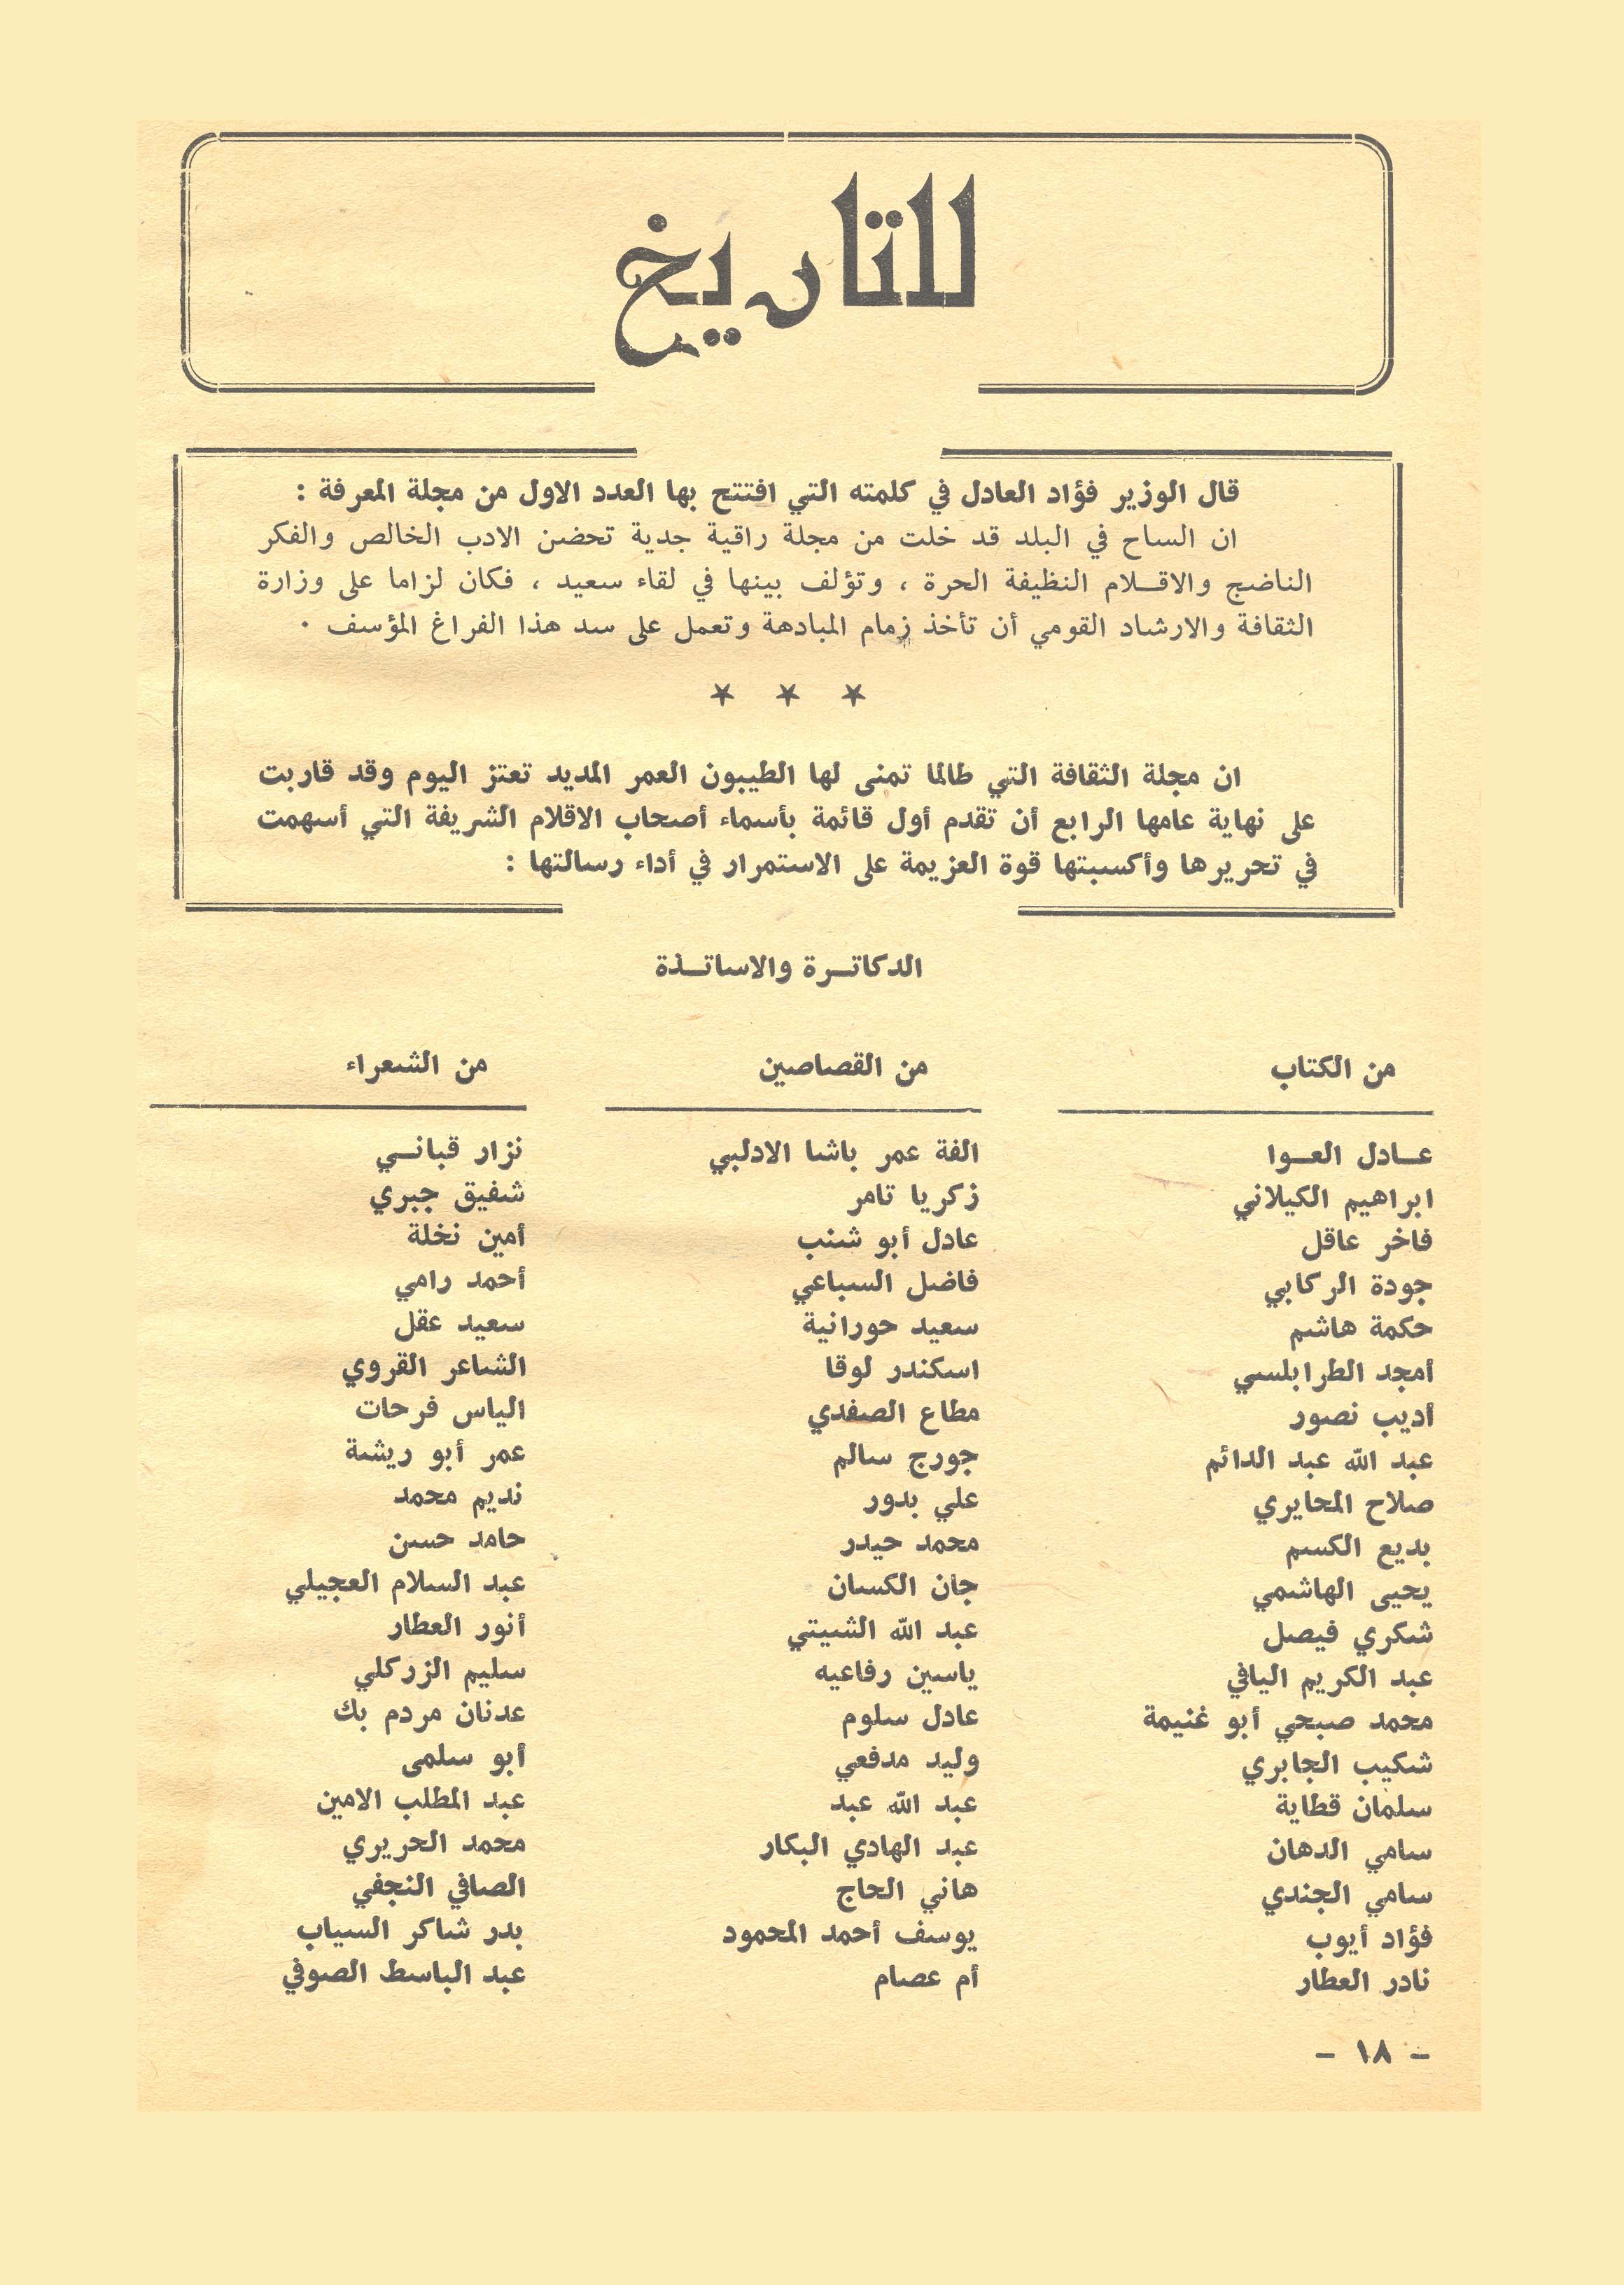 للتاريخ
قال الوزير فؤاد العادل في كلمته التي افتتح بها العدد الاول من مجلة المعرفة :
ان الساح في البلد قد خلت من مجلة راقية جدية تحضن الادب الخالص والفكر
الناضج والاقــلام النظيفة الحرة ، وتؤلف بينها في لقاء سعيد ، فكان لزاما على وزارة
الثقافة والارشاد القومي أن تأخذ زمام المبادهة وتعمل على سد هذا الفراغ المؤسف ٠
★ ★ ★
ان مجلة الثقافة التي طالما تمنى لها الطيبون العمر المديد تعتز اليوم وقد قاربت
على نهاية عامها الرابع أن تقدم أول قائمة بأسماء أصحاب الاقلام الشريفة التي أسهمت
في تحريرها وأكسبتها قوة العزيمة على الاستمرار في أداء رسالتها :
الدكاتــرة والاساتــذة
من الكتاب
عــادل العــوا
ابراهيم الكيلاني
فاخر عاقل
جودة الركابي
حكمة هاشم
أمجد الطرابلسي
أديب نصور
عبد الله عبد الدائم
صلاح المحايري
بديع الكسم
يحيى الهاشمي
شكري فيصل
عبد الكريم اليافي
محمد صبحي أبو غنيمة
شكيب الجابري
سلمان قطاية
سامي الدهان
سامي الجندي
فؤاد أيوب
نادر العطار
من القصاصين
الفة عمر باشا الادلبي
زكريا تامر
عادل أبو شنب
فاضل السباعي
سعيد حورانية
اسكندر لوقا
مطاع الصفدي
جورج سالم
علي بدور
محمد حيدر
جان الكسان
عبد الله الشيتي
ياسين رفاعيه
عادل سلوم
وليد مدفعي
عبد الله عبد
عبد الهادي البكار
هاني الحاج
يوسف أحمد المحمود
أم عصام
من الشعراء
نزار قبانــي
شفيق جبري
أمين نخلة
أحمد رامي
سعيد عقل
الشاعر القروي
الياس فرحات
عمر أبو ريشة
نديم محمد
حامد حسن
عبد السلام العجيلي
أنور العطار
سليم الزركلي
عدنان مردم بك
أبو سلمى
عبد المطلب الامين
محمد الحريري
الصافي النجفي
بدر شاكر السياب
عبد الباسط الصوفي
– ١٨ –